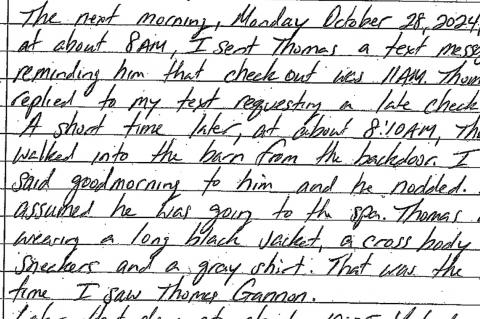 The next morning, Monday October 28, 2024,
at about 8AM, I sent Thomas a text messag
reminding him that check out was 11AM. Thom
replied to my text requesting a late check
A short time later, at about 8:10AM, Tho
walked into the barn from the backdoor. I
said goodmorning to him and he nodded.
assumed he was going to the spa. Thomas
wearing a long black jacket, a cross body
sneekers and a gray shirt. That was the
time I saw Thomas Gannon.